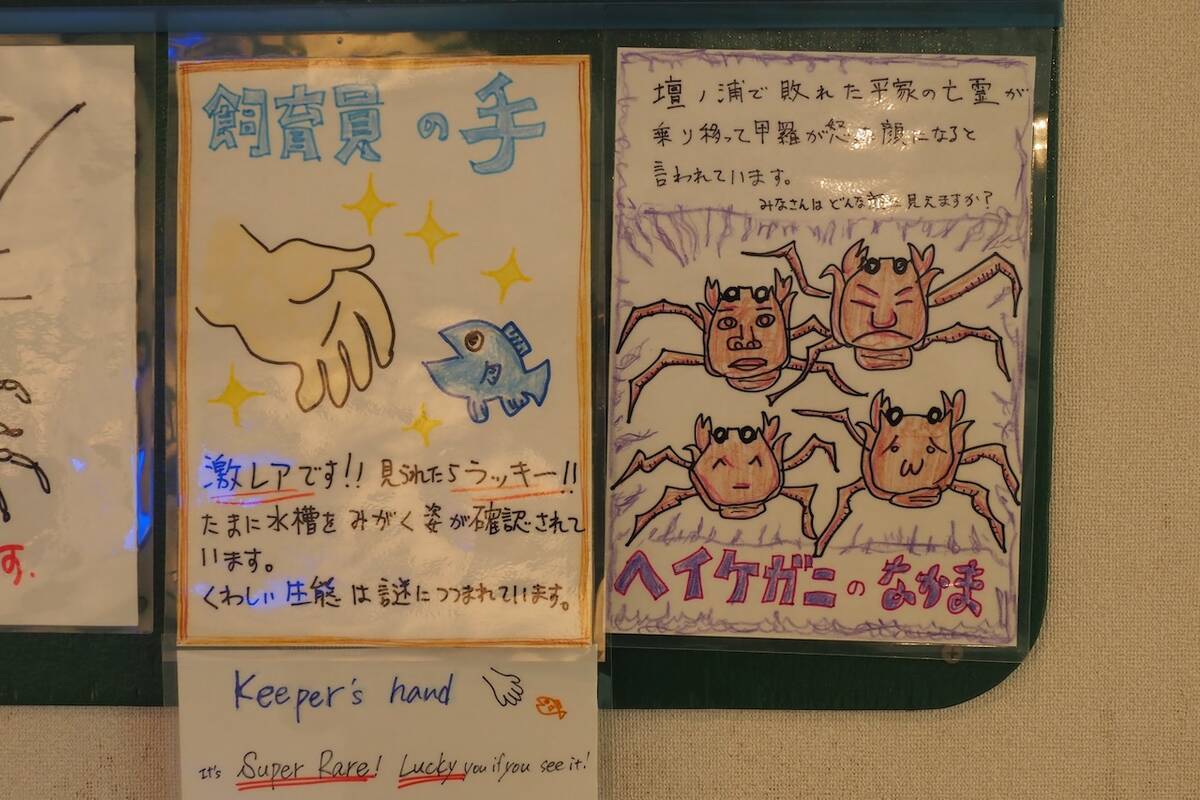 す.
飼育員の手
激レアです!! 見られたらラッキー!!
たまに水槽をみがく姿が確認されて
います。
くわしい生態は謎につつまれています。
Keeper's hand
It's Super Rare! Lucky you if you see it!
壇ノ浦で敗れた平家の亡霊が
乗り移って甲羅が怒 顔になると
言われています。
みなさんはどんな 見えますか?
ヘイケガニのなかま